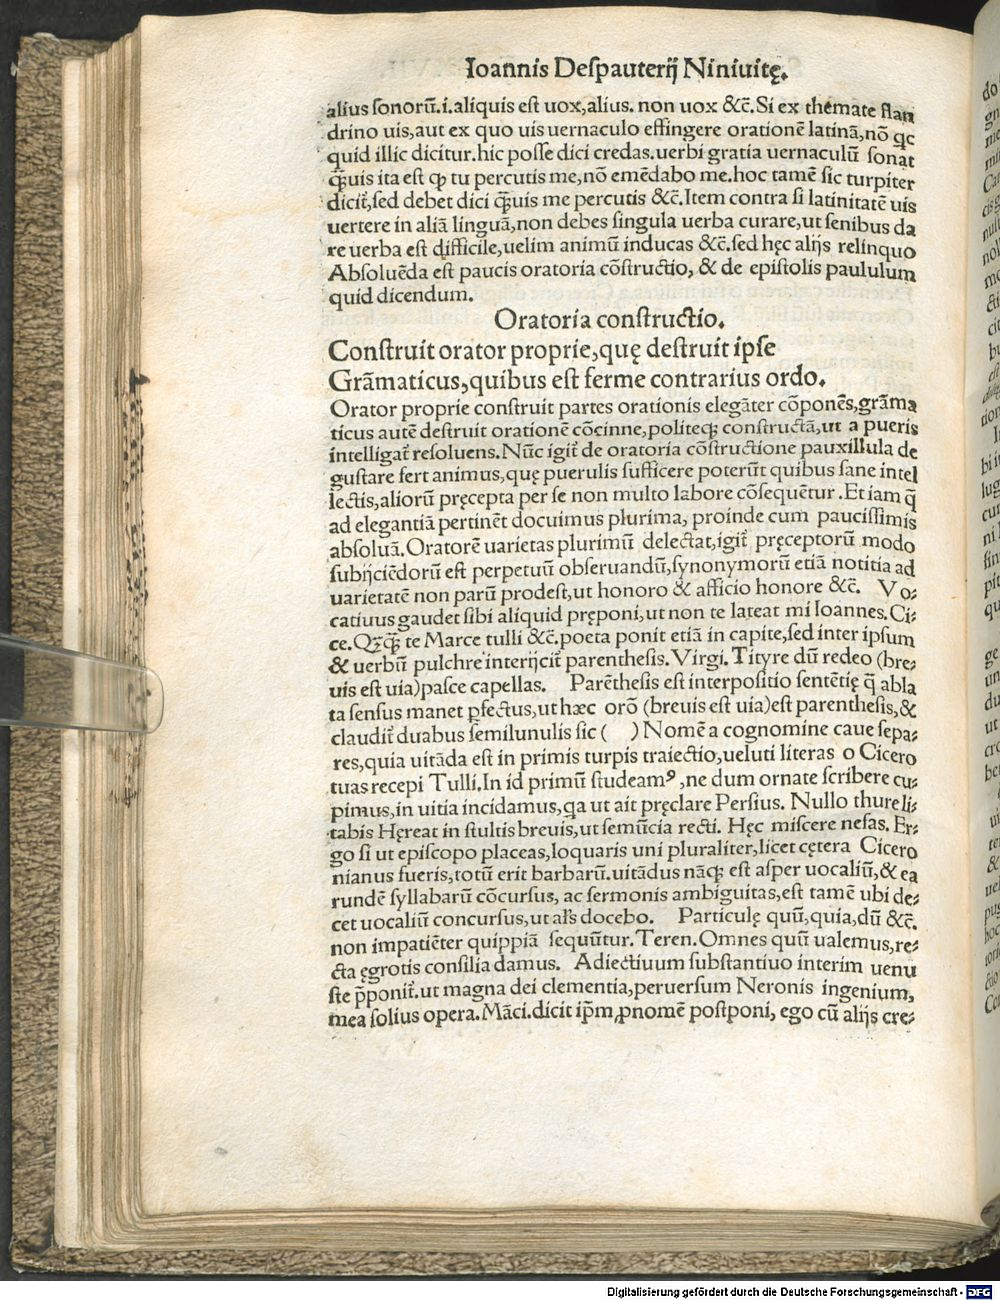 Ioannis Despauterij Niniuitę.
alius sonorū.i.aliquis est uox,alius. non uox &c̄.Si ex themate flan
drino uis,aut ex quo uis uernaculo effingere orationē latinā,nō qc
quid illic dicitur.hic posse dici credas.uerbi gratia uernaculū sonat
q̄uis ita est ꝙ tu percutis me,nō emēdabo me.hoc tamē sic turpiter
dicit̄,sed debet dici q̄uis me percutis &c̄.Item contra si latinitatē uis
uertere in aliā linguā,non debes singula uerba curare,ut senibus da
re uerba est difficile,uelim animū inducas &c̄.sed hęc alijs relinquo
Absoluēda est paucis oratoria cōstructio, & de epistolis paululum
quid dicendum.
Oratoria constructio.
Construit orator proprie,quę destruit ipse
Grāmaticus,quibus est ferme contrarius ordo.
Orator proprie construit partes orationis elegāter cōponēs,grāma
ticus autē destruit orationē cōcinne,politeqꝫ constructā,ut a pueris
intelligat̄ resoluens. Nūc igit̄ de oratoria cōstructione pauxillula de
gustare fert animus,quę puerulis sufficere poterūt quibus sane intel
lectis,aliorū pręcepta per se non multo labore cōsequētur.Et iam q̄
ad elegantiā pertinēt docuimus plurima, proinde cum paucissimis
absoluā.Oratorē uarietas plurimū delectat,igit̄ pręceptorū modo
subijciēdorū est perpetuū obseruandū,synonymorū etiā notitia ad
uarietatē non parū prodest,ut honoro & afficio honore &c̄. Vo⸗
catiuus gaudet sibi aliquid pręponi,ut non te lateat mi Ioannes. Ci⸗
ce. Qꝫq̄ te Marce tulli &c̄.poeta ponit etiā in capite,sed inter ipsum
& uerbū pulchre interijcit̄ parenthesis. Virgi. Tityre dū redeo (bre⸗
uis est uia)pasce capellas. Parēthesis est interpositio sentētię q̄ abla
ta sensus manet ꝑfectus,ut hæc orō (breuis est uia)est parenthesis,&
claudit̄ duabus semilunulis sic ( ) Nomē a cognomine caue sepa⸗
res,quia uitāda est in primis turpis traiectio,ueluti literas o Cicero
tuas recepi Tulli.In id primū studeamꝰ,ne dum ornate scribere cu⸗
pimus,in uitia incidamus,qa ut ait pręclare Persius. Nullo thure li⸗
tabis Hęreat in stultis breuis,ut semūcia recti. Hęc miscere nefas. Er⸗
go si ut episcopo placeas,loquaris uni pluraliter,licet cętera Cicero
nianus fueris,totū erit barbarū.uitādus nāqꝫ est asper uocaliū,& ea
rundē syllabarū cōcursus, ac sermonis ambiguitas,est tamē ubi de⸗
cet uocaliū concursus,ut al's docebo. Particulę quū,quia,dū &c̄.
non impatiēter quippiā sequūtur. Teren. Omnes quū ualemus,re⸗
cta ęgrotis consilia damus. Adiectiuum substantiuo interim uenu
ste p̄ponit̄.ut magna dei clementia,peruersum Neronis ingenium,
mea solius opera. Māci.dicit ip̄m ꝓnomē postponi, ego cū alijs cre⸗
Digitalisierung gefördert durch die Deutsche Forschungsgemeinschaft - DFG